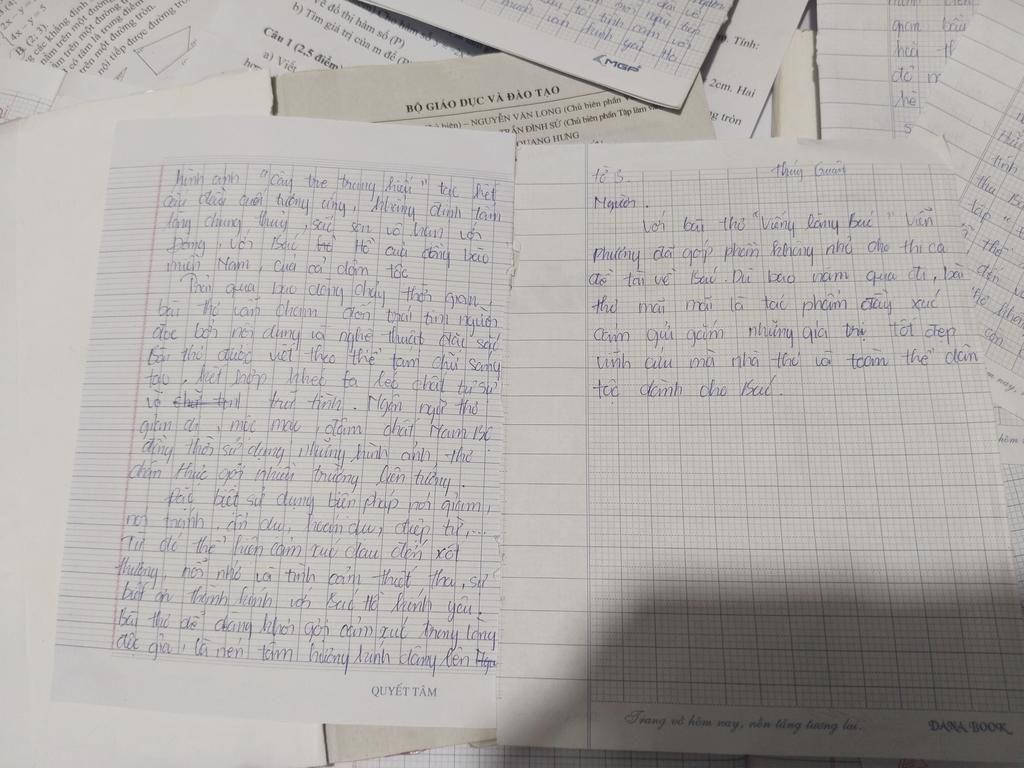 4x - y =
x - y = 5
B. (2; 3).
vẽ đồ thị hàm số (P)
b) Tìm giá trị của m để (P
Câu 1 (2,5 điểm)
a) Viết
MGP
Tính:
2cm. Hai
BỘ GIÁO DỤC VÀ ĐÀO TẠO
NGUYỄN VĂN LONG (Chủ biên phần V
TRẦN ĐÌNH SỬ (Chủ biên phần Tập làm văn
QUANG HƯNG
hình ảnh "cây tre trung hiếu" tạo kết
cấu đầu cuối tương ứng, khẳng định tấm
lòng chung thủy, sắc son vô hạn với
Đảng, với Bác Hồ của đồng bào
miền Nam, của cả dân tộc
Trải qua bao dòng chảy thời gian,
bài thơ vẫn chạm đến trái tim người
đọc bởi nội dung và nghệ thuật đặc sắc
Bài thơ được viết theo thể tám chữ sáng
tạo. kết hợp khéo léo chất tự sự
và trữ tình. Ngôn ngữ thơ
giản dị, mộc mạc, đậm chất Nam Bộ
đồng thời sử dụng những hình ảnh thơ
chân thực gợi nhiều trường liên tưởng.
Đặc biệt sử dụng biện pháp nói giảm,
nói tránh, ẩn dụ, hoán dụ, điệp từ,...
Từ đó thể hiện cảm xúc đau đớn xót
thương, nỗi nhớ và tình cảm thiết tha, sự
biết ơn thành kính với Bác Hồ kính yêu.
Bài thơ dễ dàng khơi gợi cảm xúc trong lòng
độc giả, là nén tâm hương kính dâng lên
QUYẾT TÂM
tờ 3.
Người.
Với bài thơ "Viếng lăng Bác" Viễn
Phương đã góp phần không nhỏ cho thi ca
đề tài về Bác. Dù bao năm qua đi, bài
thơ mãi mãi là tác phẩm đầy xúc
cảm gửi gắm những giá trị tốt đẹp
vĩnh cửu mà nhà thơ và toàn thể dân
tộc dành cho Bác.
Trang vở hôm nay, nền tảng tương lai.
DANA BOOK